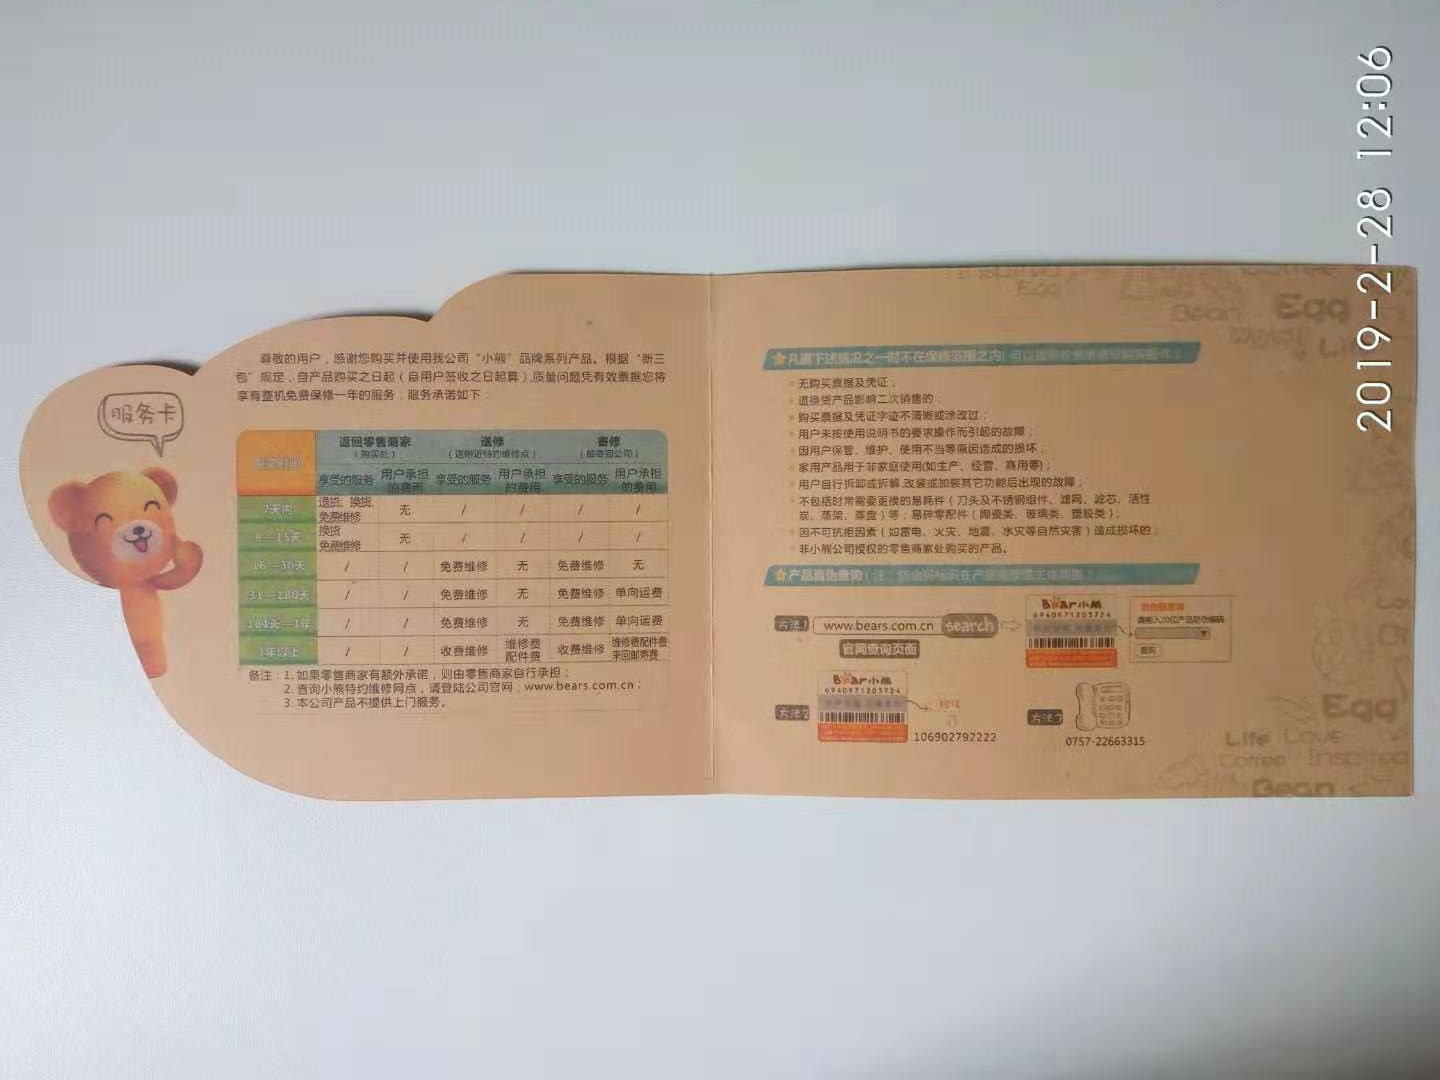 2019-2-28 12:06
服务卡
尊敬的用户，感谢您购买并使用我公司“小熊”品牌系列产品。根据“新三
包”规定，自产品购买之日起（自用户签收之日起算），质量问题凭有效票据您将
享有整机免费保修一年的服务，服务承诺如下：
返回零售商家 送修 寄修
（购买处） （送附近特约维修点） （邮寄回公司）
享受的服务 用户承担的费用 享受的服务 用户承担的费用 享受的服务 用户承担的费用
7天内 退货、换货、免费维修 无 / / / /
8—15天 换货 免费维修 无 / / / /
16—30天 / / 免费维修 无 免费维修 无
31—180天 / / 免费维修 无 免费维修 单向运费
181天—1年 / / 免费维修 无 免费维修 单向运费
1年以上 / / 收费维修 维修费 配件费 收费维修 维修费配件费 来回邮寄费
备注：1. 如果零售商家有额外承诺，则由零售商家自行承担；
2. 查询小熊特约维修网点，请登陆公司官网：www.bears.com.cn；
3. 本公司产品不提供上门服务。
凡属下述情况之一时不在保修范围之内
无购买票据及凭证；
退换货产品影响二次销售的；
购买票据及凭证字迹不清晰或涂改过；
用户未按使用说明书的要求操作而引起的故障；
因用户保管、维护、使用不当等原因造成的损坏；
家用产品用于非家庭使用(如生产、经营、商用等)；
用户自行拆卸或拆解,改装或加装其它功能后出现的故障；
不包括时常需要更换的易耗件（刀头及不锈钢组件、滤网、滤芯、活性
炭、蒸架、蒸盘）等；易碎零配件（陶瓷类、玻璃类、塑胶类）；
因不可抗拒因素（如雷电、火灾、地震、水灾等自然灾害）造成损坏的；
非小熊公司授权的零售商家处购买的产品。
产品真伪查询
方法1 www.bears.com.cn search
官网查询页面
Bear小熊
6940971203724
请输入20位产品防伪编码
查询
方法2
Bear小熊
6940971203724
106902792222
方法3
0757-22663315
Inspired Coffee
Egg
Bean Egg
Egg
Life Love
Coffee Inspired
Bean